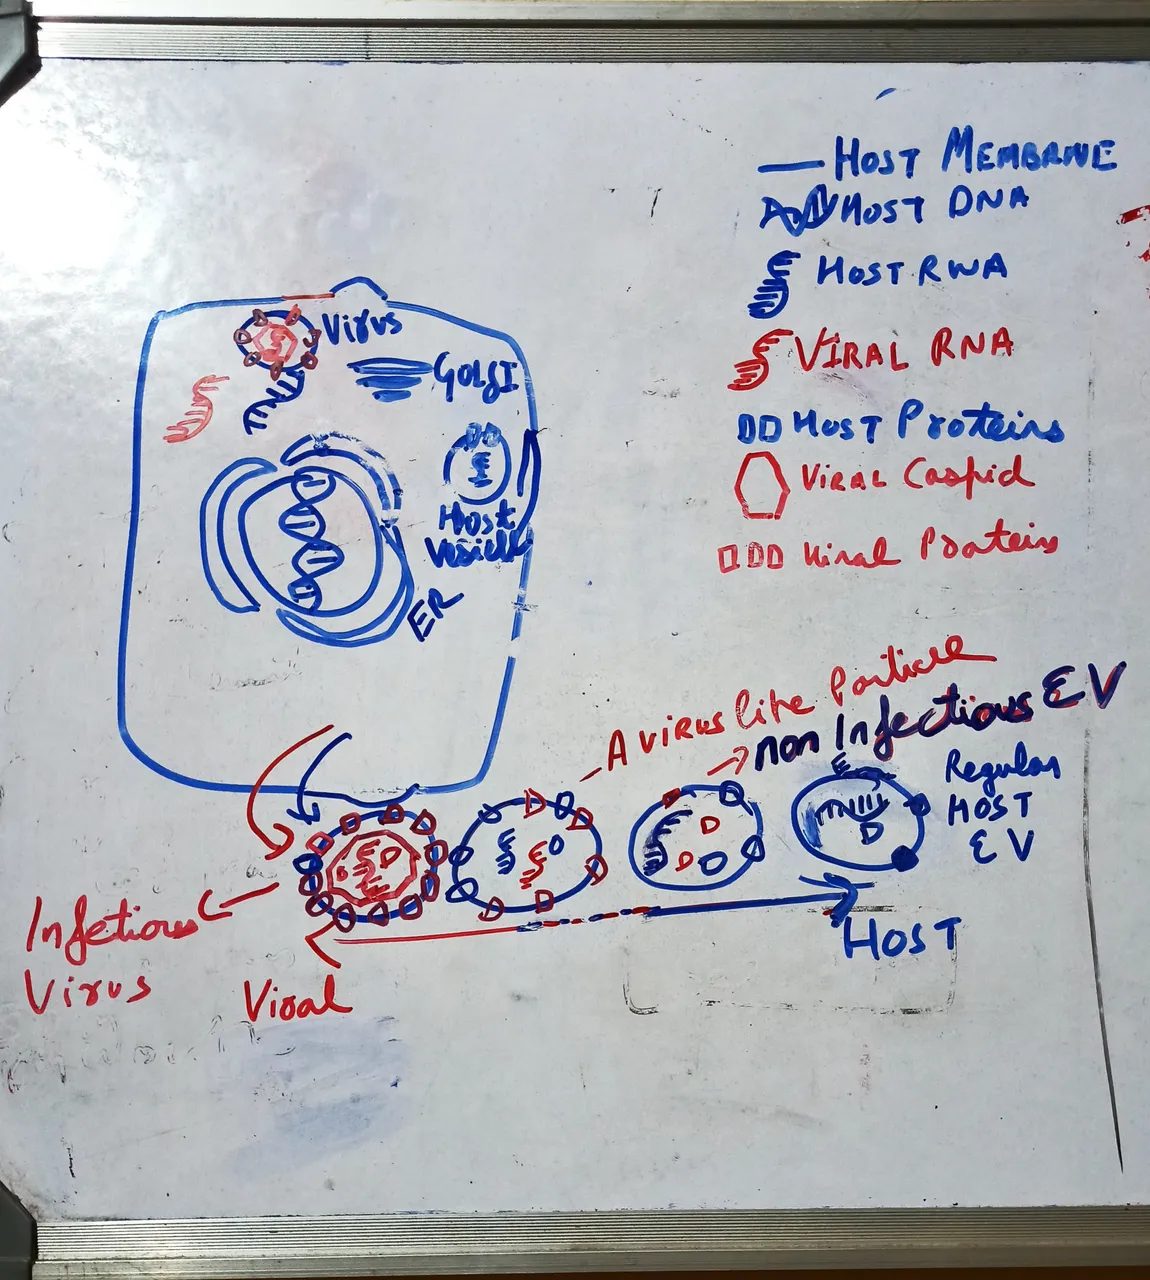 HOST MEMBRNE
HOST DNA
HOST RWA
VIRAL RNA
HOST Proteins
Viral Caspid
Viral Protein
Virus
GOLGI
Host
Vesicle
ER
A virus like Particle
non Infectious EV
Regular
HOST
EV
Infetious
Virus
Viral
HOST